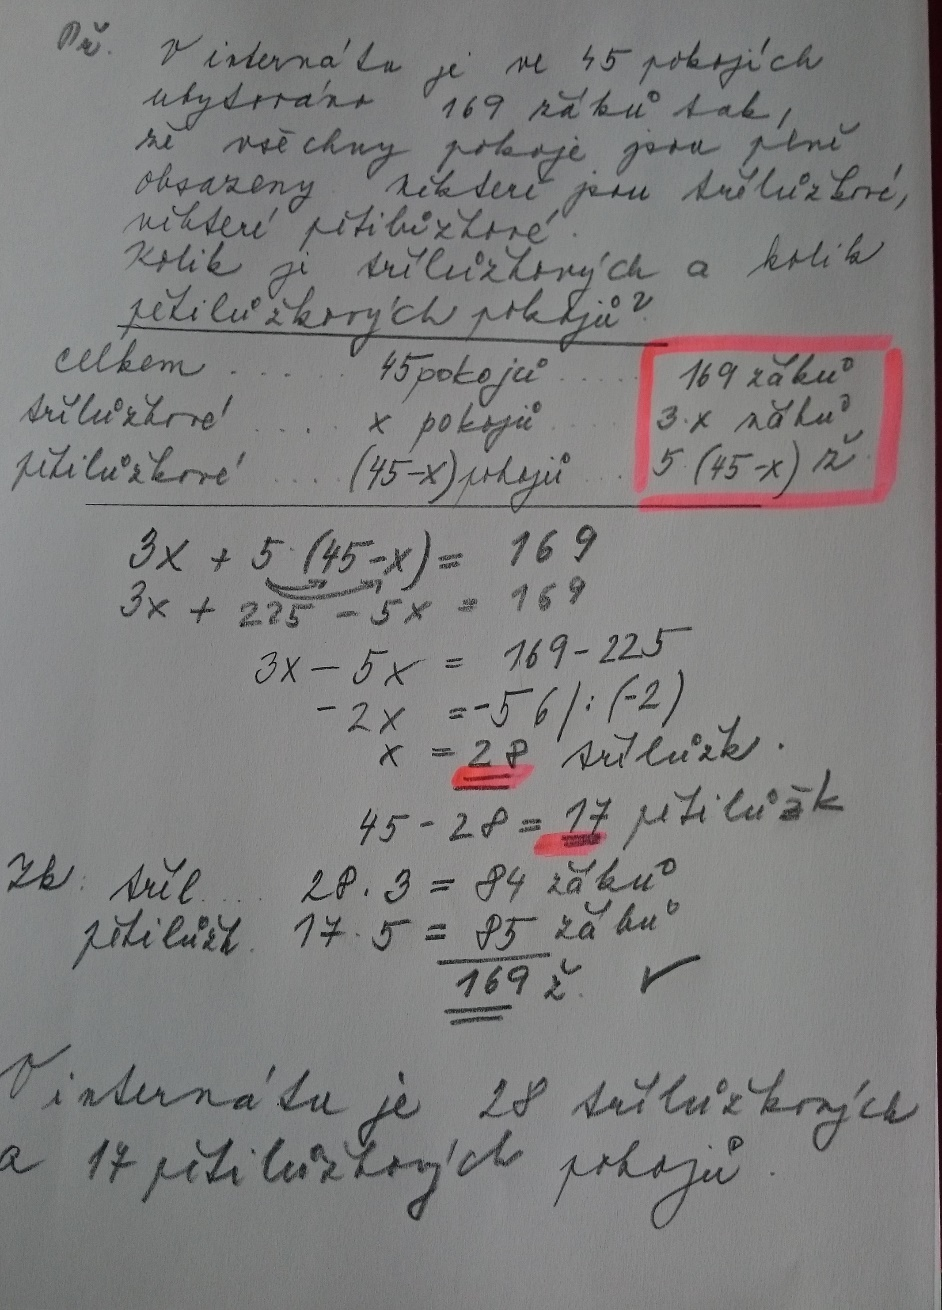 Př. V internátu je ve 45 pokojích
ubytováno 169 žáků tak,
že všechny pokoje jsou plně
obsazeny. Některé jsou třílůžkové,
některé pětilůžkové.
Kolik je třílůžkových a kolik
pětilůžkových pokojů?
celkem .... 45 pokojů .... 169 žáků
třílůžkové .... x pokojů .... 3·x žáků
pětilůžkové .... (45-x) pokojů ... 5·(45-x) ž
3x + 5·(45-x) = 169
3x + 225 - 5x = 169
3x - 5x = 169 - 225
-2x = -56 /:(-2)
x = 28 třílůžk.
45 - 28 = 17 pětilůžk
Zk: tříl.... 28·3 = 84 žáků
pětilůžk. 17·5 = 85 žáků
169 ž. ✓
V internátu je 28 třílůžkových
a 17 pětilůžkových pokojů.